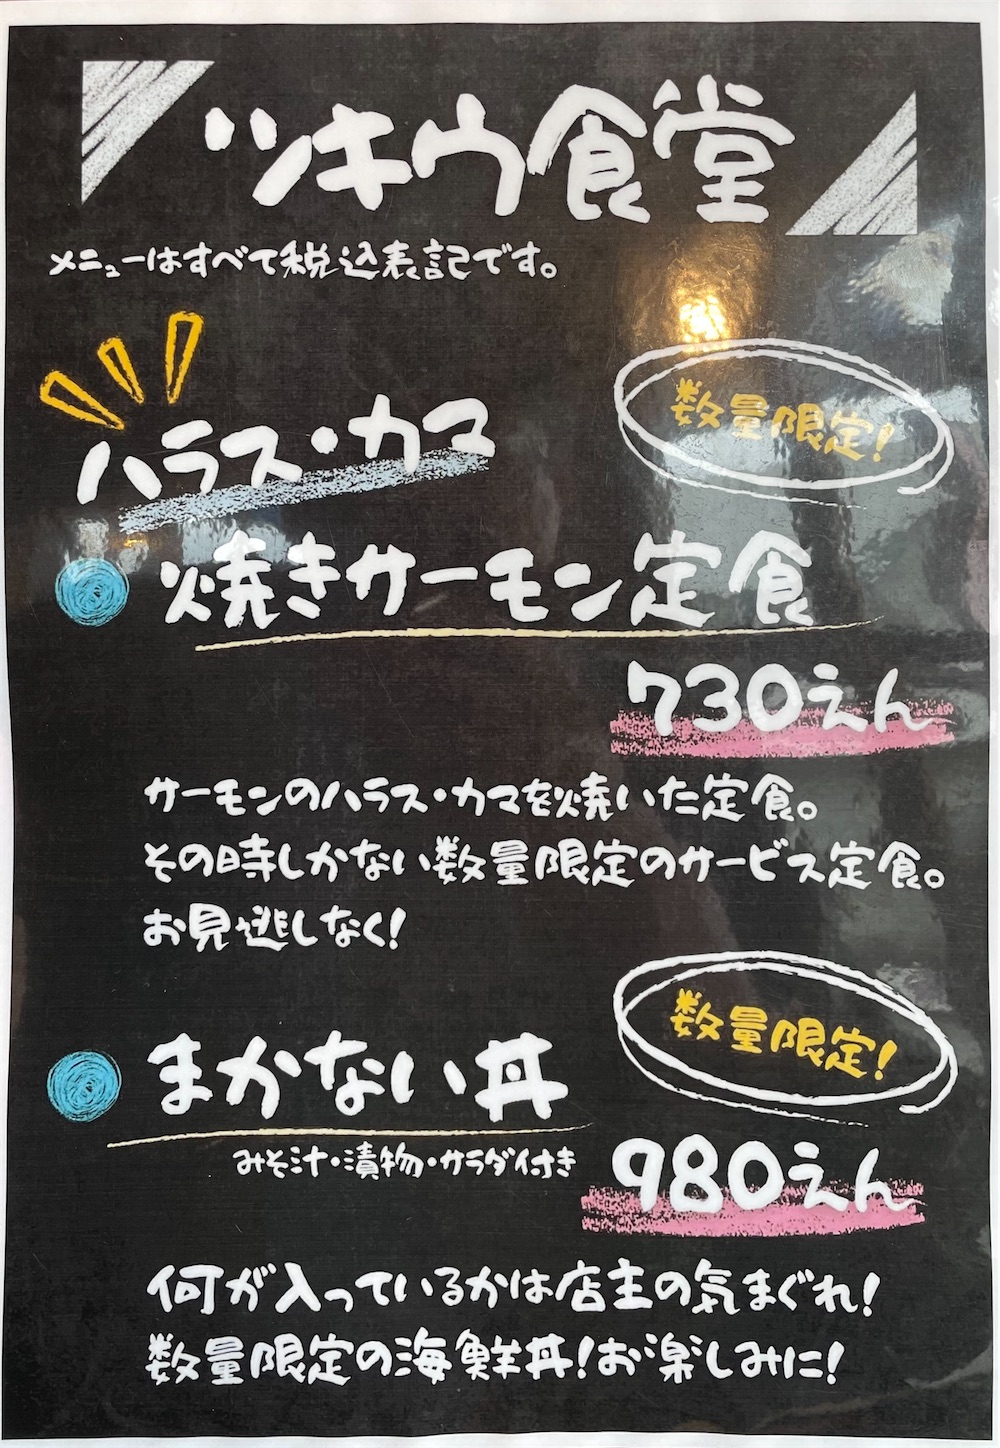 ツキウ食堂
メニューはすべて税込表記です。
数量限定！
ハラス・カマ
焼きサーモン定食
730えん
サーモンのハラス・カマを焼いた定食。
その時しかない数量限定のサービス定食。
お見逃しなく！
数量限定！
まかない丼
みそ汁・漬物・サラダ付き
980えん
何が入っているかは店主の気まぐれ！
数量限定の海鮮丼！お楽しみに！